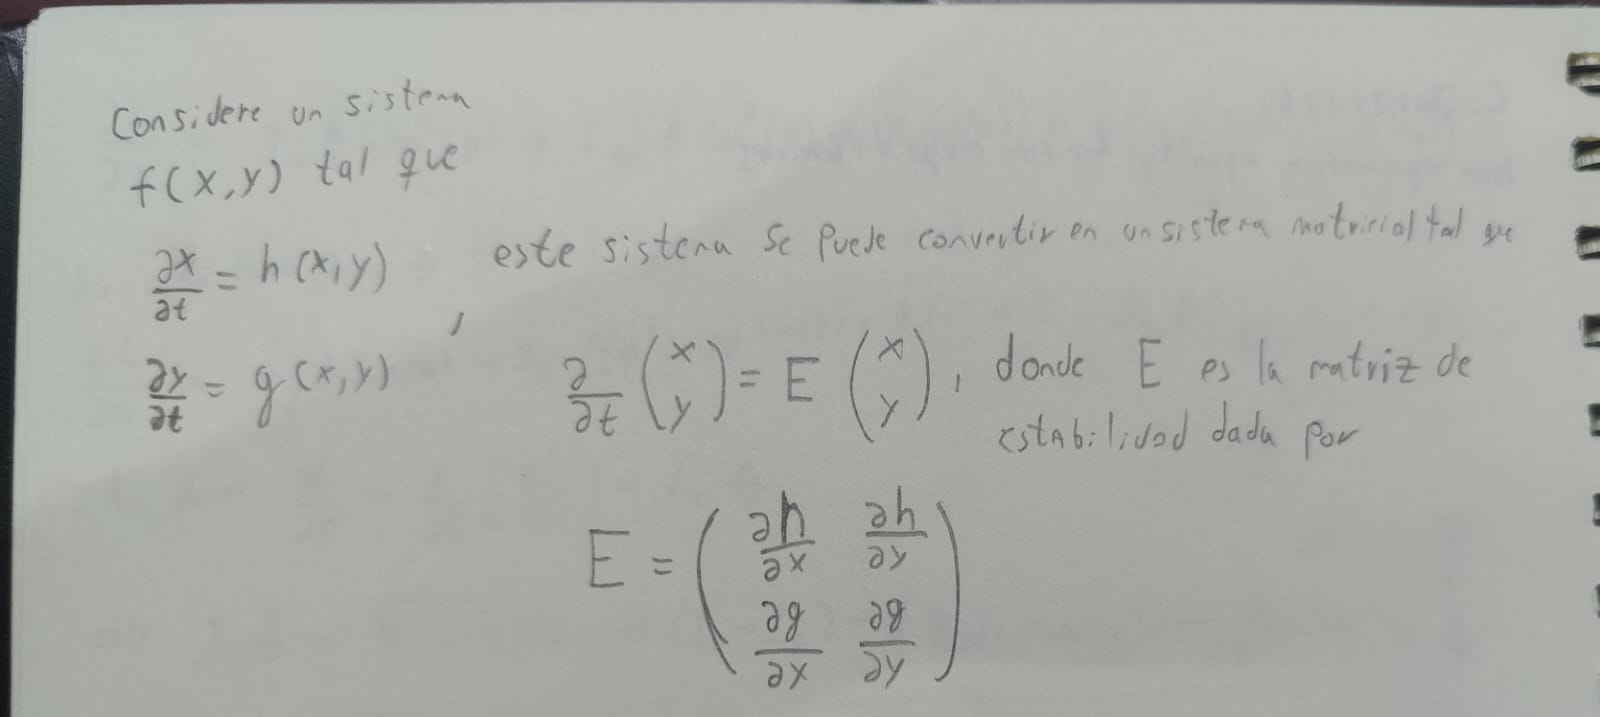 Considere un sistema
f(x,y) tal que
∂x/∂t = h(x,y)
∂y/∂t = g(x,y) ,
este sistema se puede convertir en un sistema matricial tal que
∂/∂t (x y) = E (x y), donde E es la matriz de
estabilidad dada por
E = (∂h/∂x ∂h/∂y
∂g/∂x ∂g/∂y)